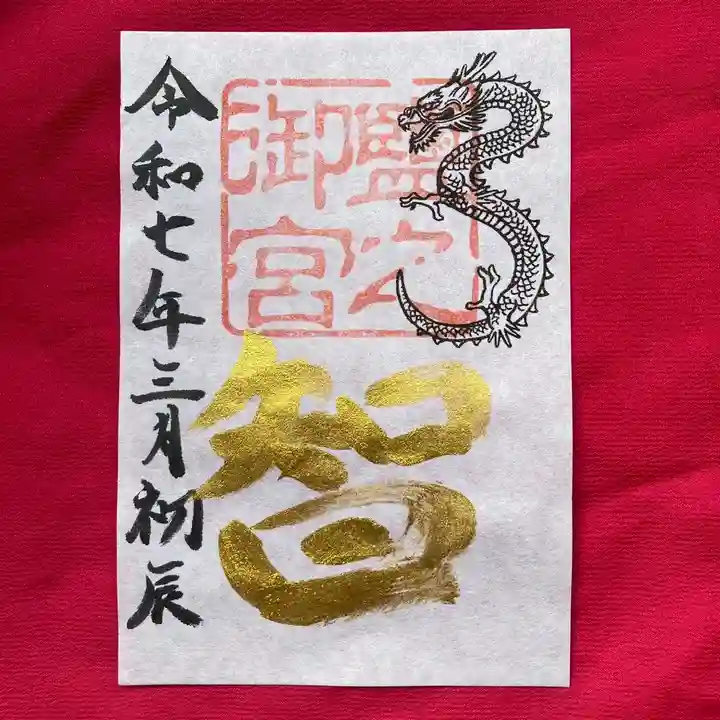 鹽之
御宮
智
令和七年三月初辰